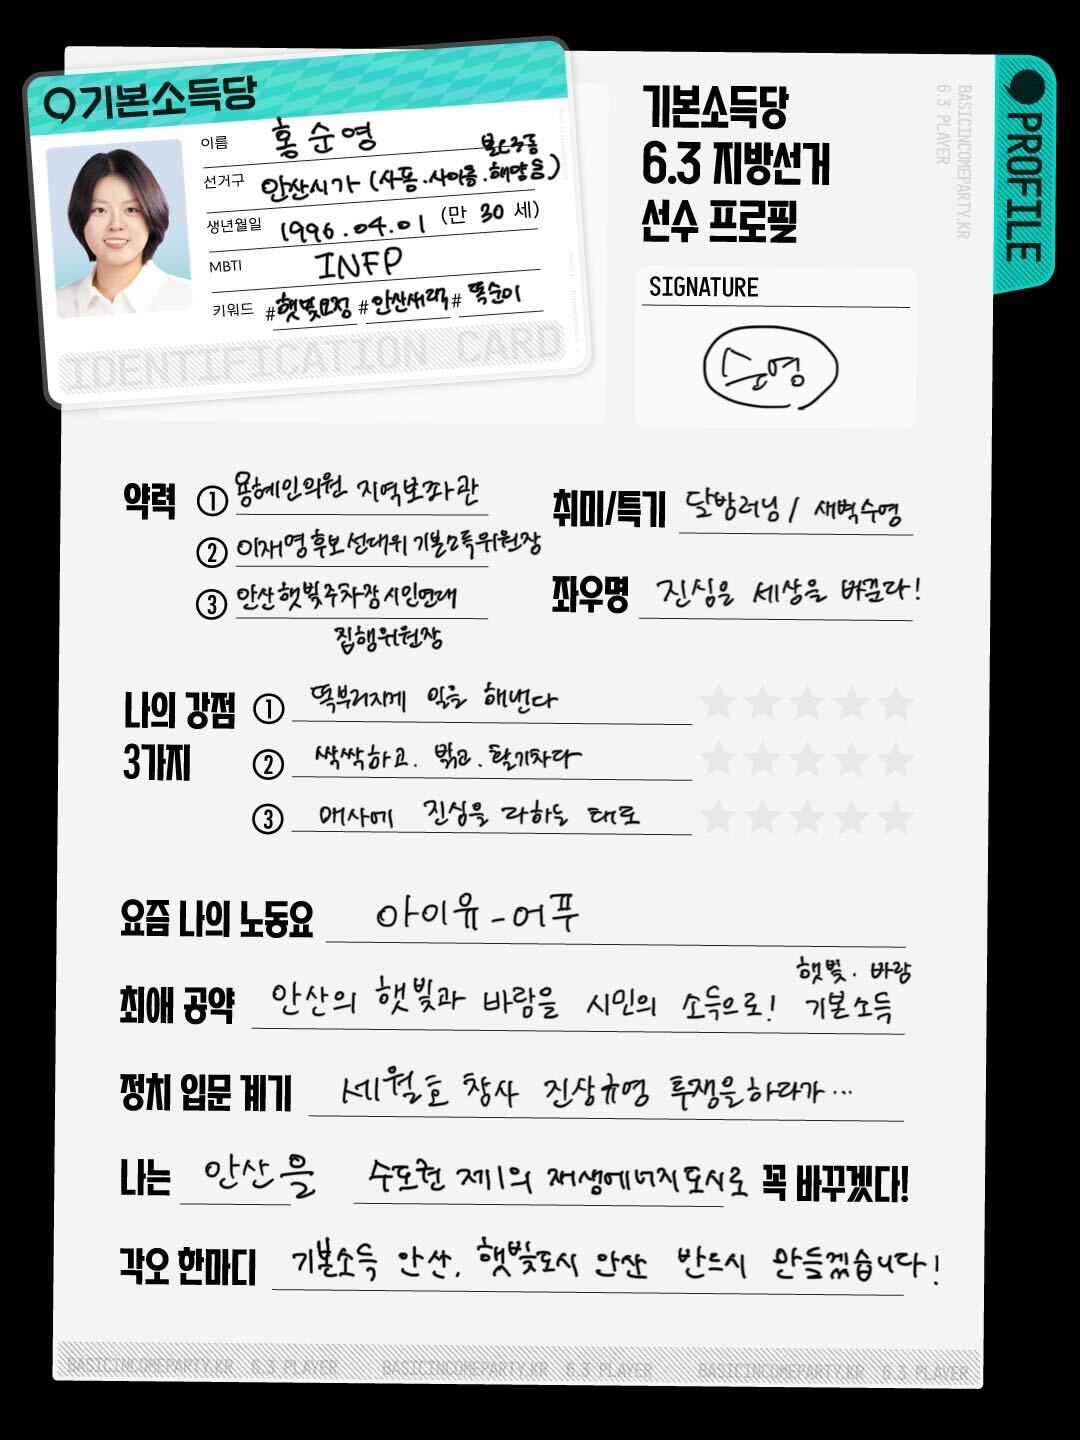 기본소득당
이름 홍순영
본오3동
선거구 안산시가 (사동·사이동·해양동)
생년월일 1996.04.01 (만 30 세)
MBTI INFP
키워드 #햇빛요정 #안산새력 #똑순이
IDENTIFICATION CARD
기본소득당
6.3 지방선거
선수 프로필
BASICINCOMEPARTY.KR
6.3 PLAYER
PROFILE
SIGNATURE
순영
약력 ① 용혜인의원 지역보좌관
② 이재명후보선대위 기본소득위원장
③ 안산햇빛주차장시민연대
집행위원장
취미/특기 달밤러닝 / 새벽수영
좌우명 진심은 세상을 바꾼다!
나의 강점
3가지
① 똑부러지게 일을 해낸다
② 싹싹하고. 밝고. 활기차다
③ 매사에 진심을 다하는 태도
요즘 나의 노동요 아이유-어푸
햇빛·바람
최애 공약 안산의 햇빛과 바람을 시민의 소득으로! 기본소득
정치 입문 계기 세월호 참사 진상규명 투쟁을하다가…
나는 안산을 수도권 제1의 재생에너지도시로 꼭 바꾸겠다!
각오 한마디 기본소득 안산, 햇빛도시 안산 반드시 만들겠습니다!
BASICINCOMEPARTY.KR 6.3 PLAYER BASICINCOMEPARTY.KR 6.3 PLAYER BASICINCOMEPARTY.KR 6.3 PLAYER